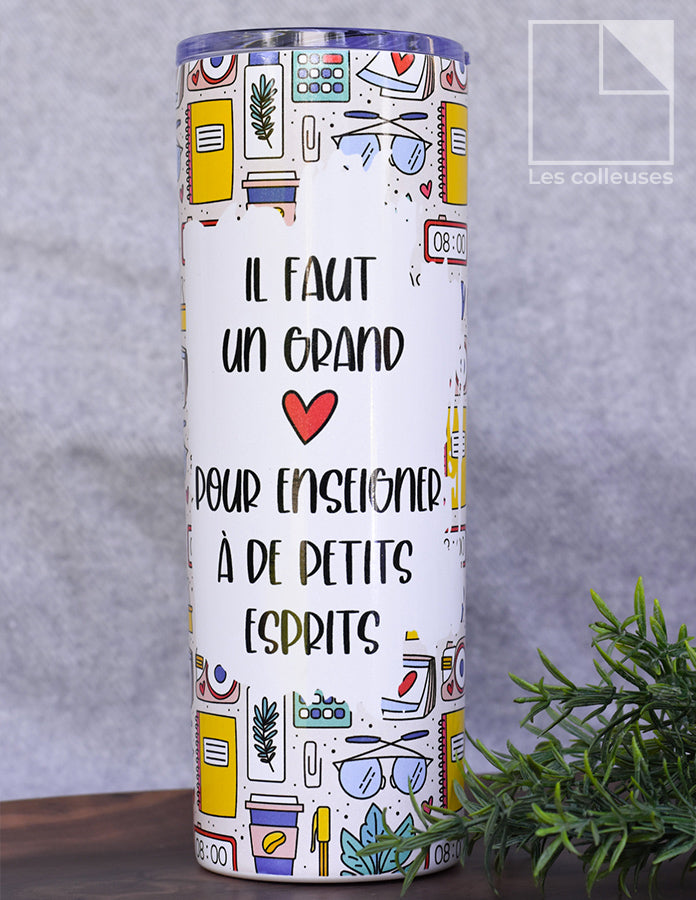 Les colleuses
08:00
IL FAUT
UN GRAND
POUR ENSEIGNER
À DE PETITS
ESPRITS
08:00
08:0